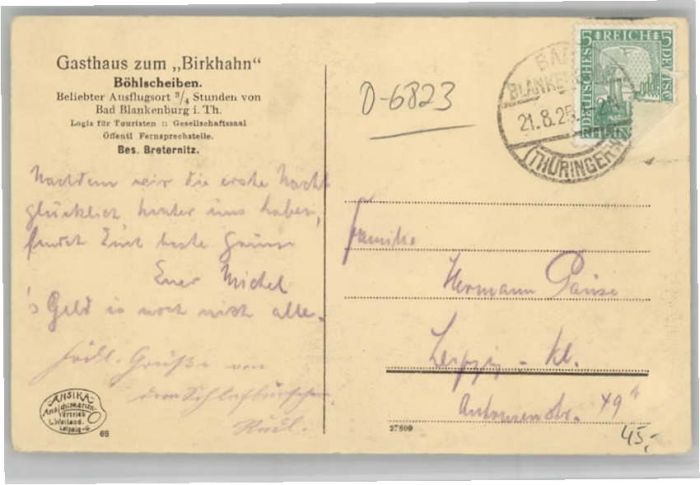 Gasthaus zum „Birkhahn“
Böhlscheiben.
Beliebter Ausflugsort ¾ Stunden von
Bad Blankenburg i. Th.
Logis für Touristen :: Gesellschaftssaal
Öffentl Fernsprechstelle.
Bes. Breternitz.
Nachdem wir die erste Nacht
glücklich hinter uns haben,
sendet Euch beste Grüsse
Euer Michel
's Geld is noch nich alle.
Hrdl. Grüße von
dem Schlafburschen
Rudl.
ANSIKA
Ansichtkarten-
Vertrieb
Leipzig
66
D-6823
5 REICH 5
DEUTSCHES
BAD
BLANKENB
21.8.25
(THÜRINGERW
Familie
Hermann Pause
Leipzig - Kl.
Antonienstr. 49
27809
45,-